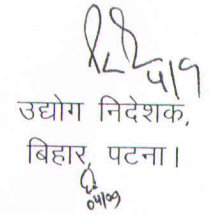 4/9
उद्योग निदेशक,
बिहार, पटना।
04/09